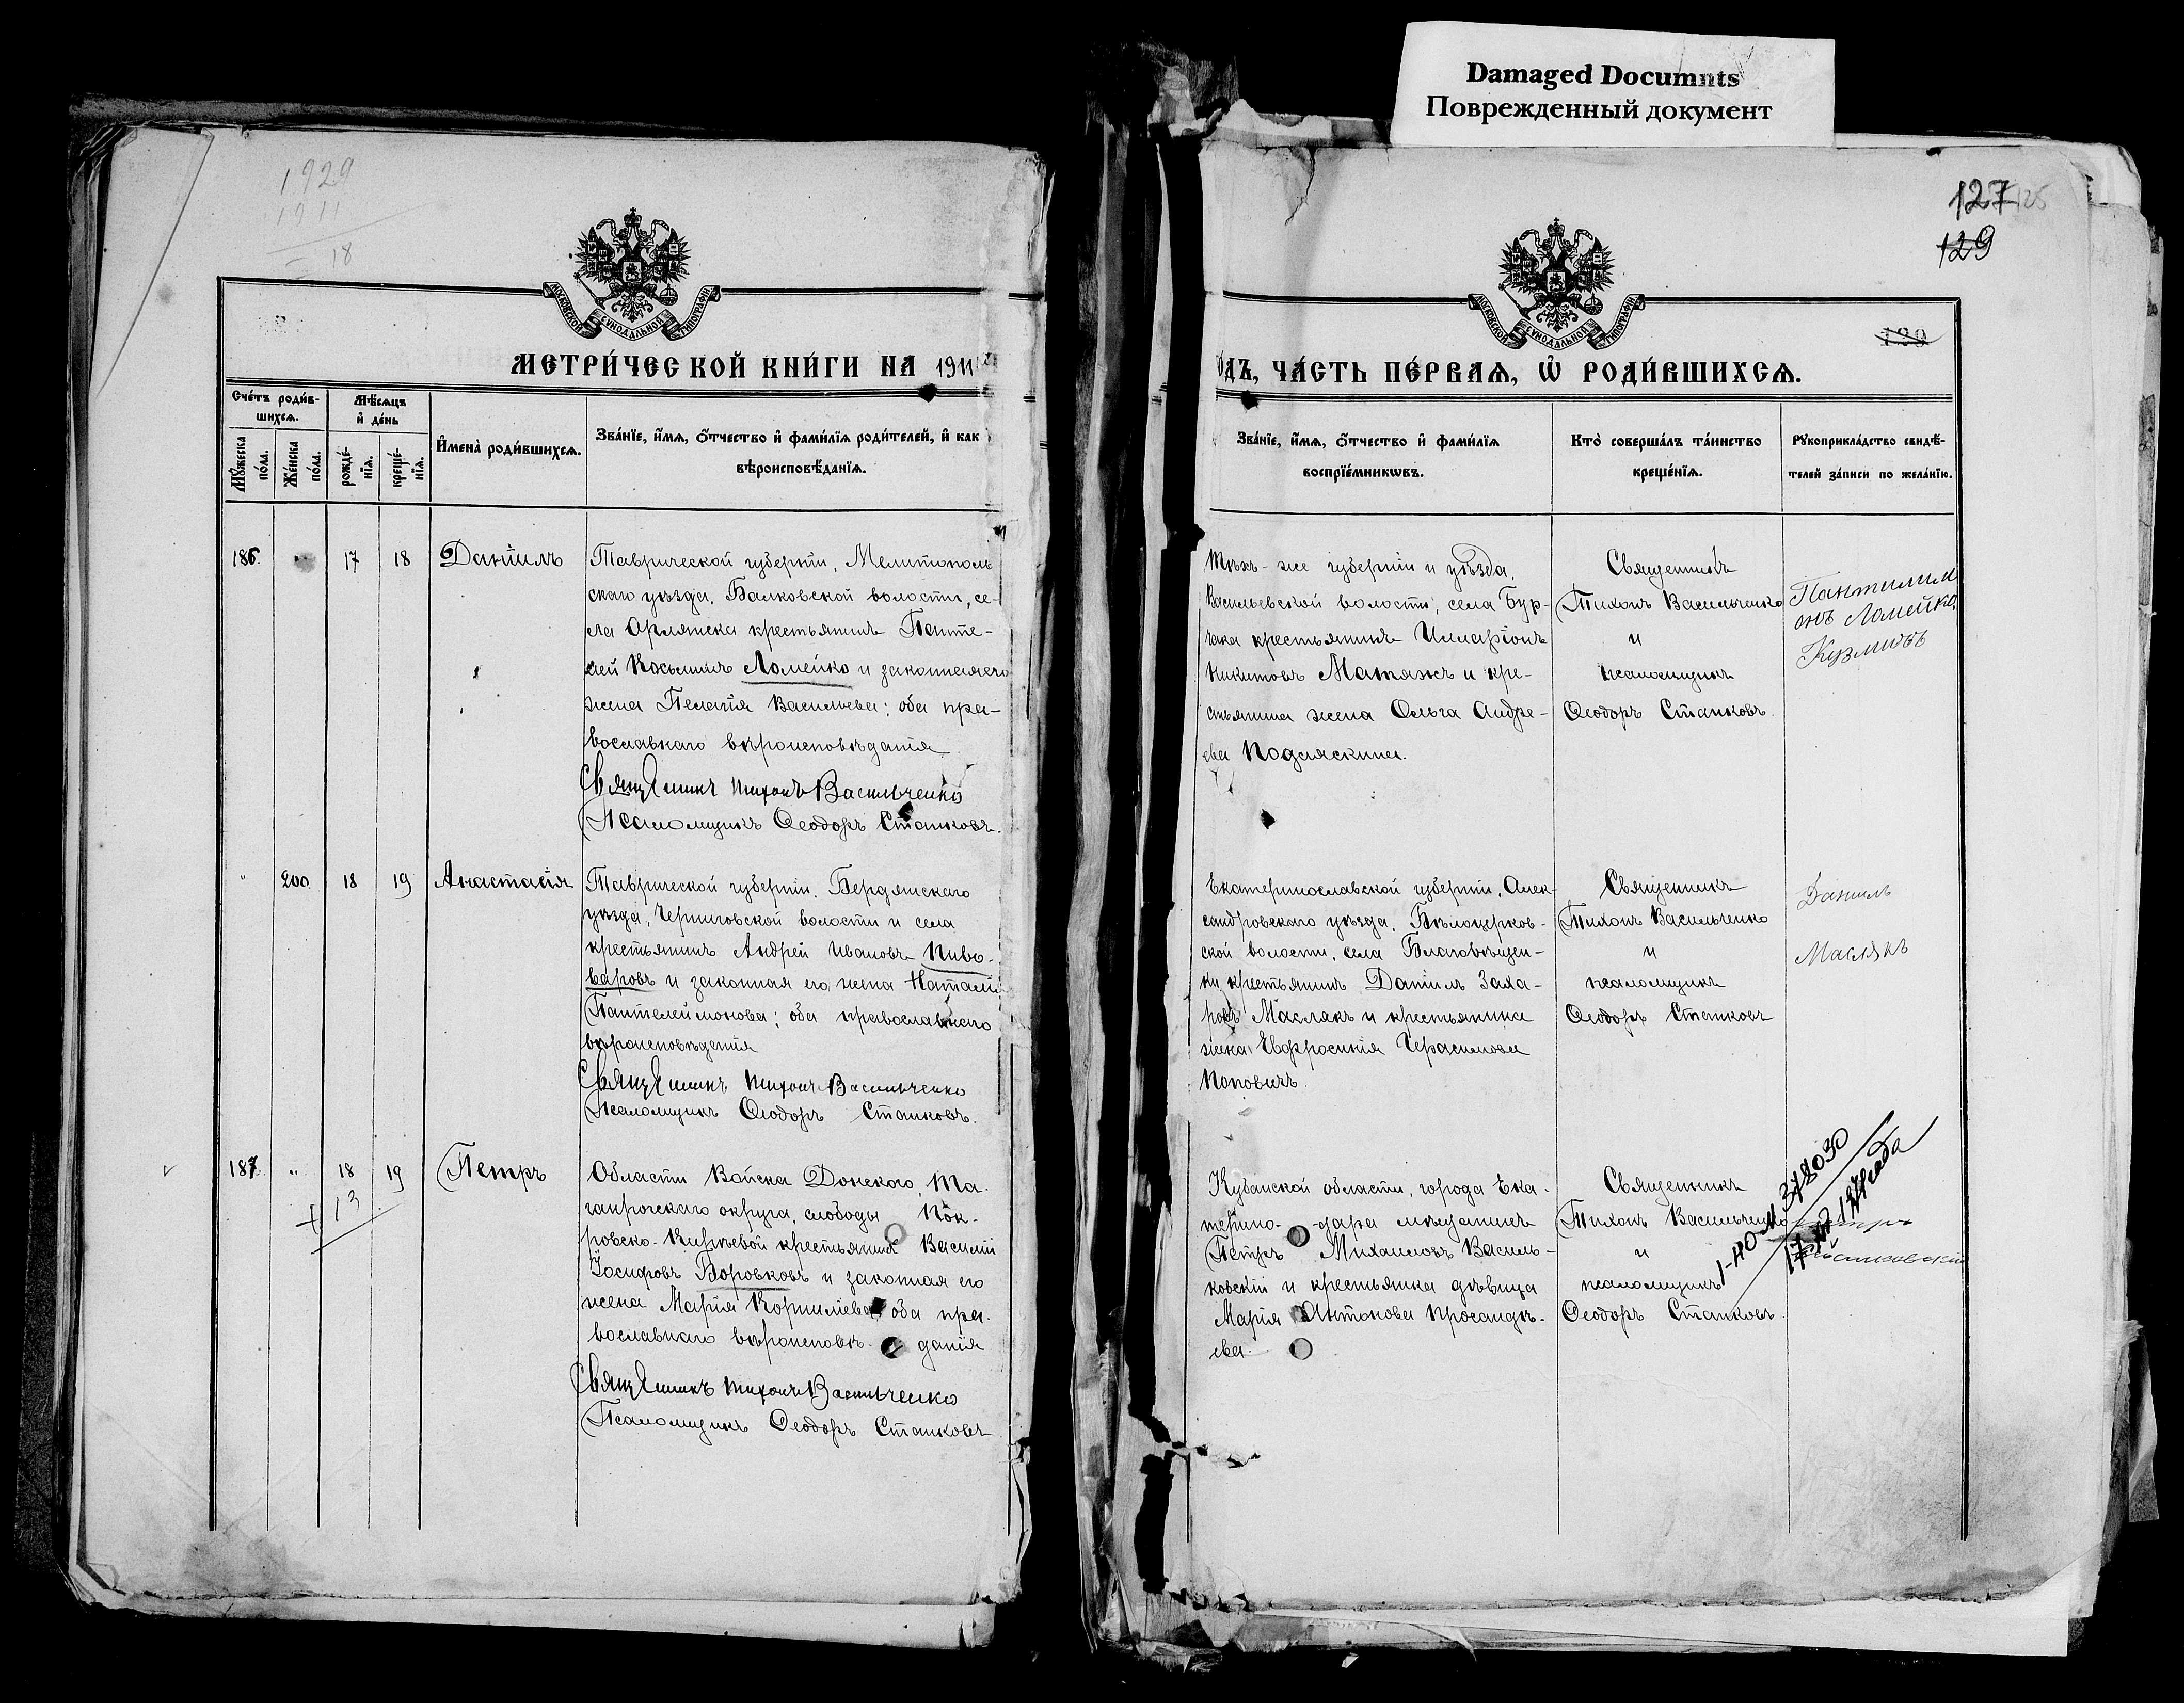 Damaged Documnts
Поврежденный документ
1929
1911
18
127 125
129
МОСКОВСКОЙ СѴНОДАЛЬНОЙ ТИПОГРАФІИ
МОСКОВСКОЙ СѴНОДАЛЬНОЙ ТИПОГРАФІИ
МЕТРИ́ЧЕСКОЙ КНИ́ГИ НА 1911
ОДЪ, ЧА́СТЬ ПЕ́РВАѦ, Ѡ҆ РОДИ́ВШИХСѦ.
Сче́тъ роди́в-
шихсѧ.
Мѣ́сѧцъ
и҆ де́нь
Мꙋ́жеска
по́ла.
Же́нска
по́ла.
рожде́-
нїѧ.
креще́-
нїѧ.
И҆мена̀ роди́вшихсѧ.
Зва́нїе, и҆́мѧ, ѻ҆́тчество и҆ фами́лїѧ роди́телей, и҆ как
вѣроисповѣ́данїѧ.
Зва́нїе, и҆́мѧ, ѻ҆́тчество и҆ фами́лїѧ
воспрїе́мникѡвъ.
Кто̀ соверша́лъ та́инство
креще́нїѧ.
Рꙋкоприкла́дство свидѣ́-
телей за́писи по жела́нїю.
186. 17 18 Даніилъ
Таврической губерніи, Мелитополь
скаго уѣзда, Балковской волости, се-
ла Орлянска крестьянинъ Панте-
лей Косьминъ Ломейко и законная его
жена Пелагія Васильева; оба пра-
вославнаго вѣроисповѣданія
Священникъ Тихонъ Васильченко
Псаломщикъ Ѳеодоръ Станковъ.
Тѣхъ-же губерніи и уѣзда,
Васильевской волости, села Бур-
чака крестьянинъ Илларіонъ
Никитовъ Матяжъ и кре-
стьянина жена Ольга Андре-
ева Подляскина.
Священникъ
Тихонъ Васильченко
и
псаломщикъ
Ѳеодоръ Станковъ.
Пантилим
онъ Ломейко
Кузмичъ
" 200 18 19 Анастасія
Таврической губерніи, Бердянскаго
уѣзда, Черниговской волости и села
крестьянинъ Андрей Ивановъ Пиво-
варовъ и законная его жена Наталія
Пантелеймонова; оба православнаго
вѣроисповѣданія
Священникъ Тихонъ Васильченко
Псаломщикъ Ѳеодоръ Станковъ.
Екатеринославской губерніи, Алек-
сандровскаго уѣзда, Бѣлоцерков-
ской волости, села Благовѣщен-
ки крестьянинъ Даніилъ Заха-
ровъ Маслякъ и крестьянина
жена Евфросинія Герасимова
Поповичъ.
Священникъ
Тихонъ Васильченко
и
псаломщикъ
Ѳеодоръ Станковъ
Данилъ
Маслякъ
187. " 18 19 Петръ
13
Области Войска Донского, Та-
ганрогскаго округа, слободы Пок-
ровско-Кирѣевой крестьянинъ Василій
Іосифовъ Боровковъ и законная его
жена Марія Корниліева; оба пра-
вославнаго вѣроисповѣ-данія
Священникъ Тихонъ Васильченко
Псаломщикъ Ѳеодоръ Станковъ
Кубанской области, города Ека-
терино-дара мѣщанинъ
Петръ Михаиловъ Василь-
ковскій и крестьянка дѣвица
Марія Антонова
ева.
Священникъ
Тихонъ Васильченко
и
псаломщикъ
Ѳеодоръ Станковъ.